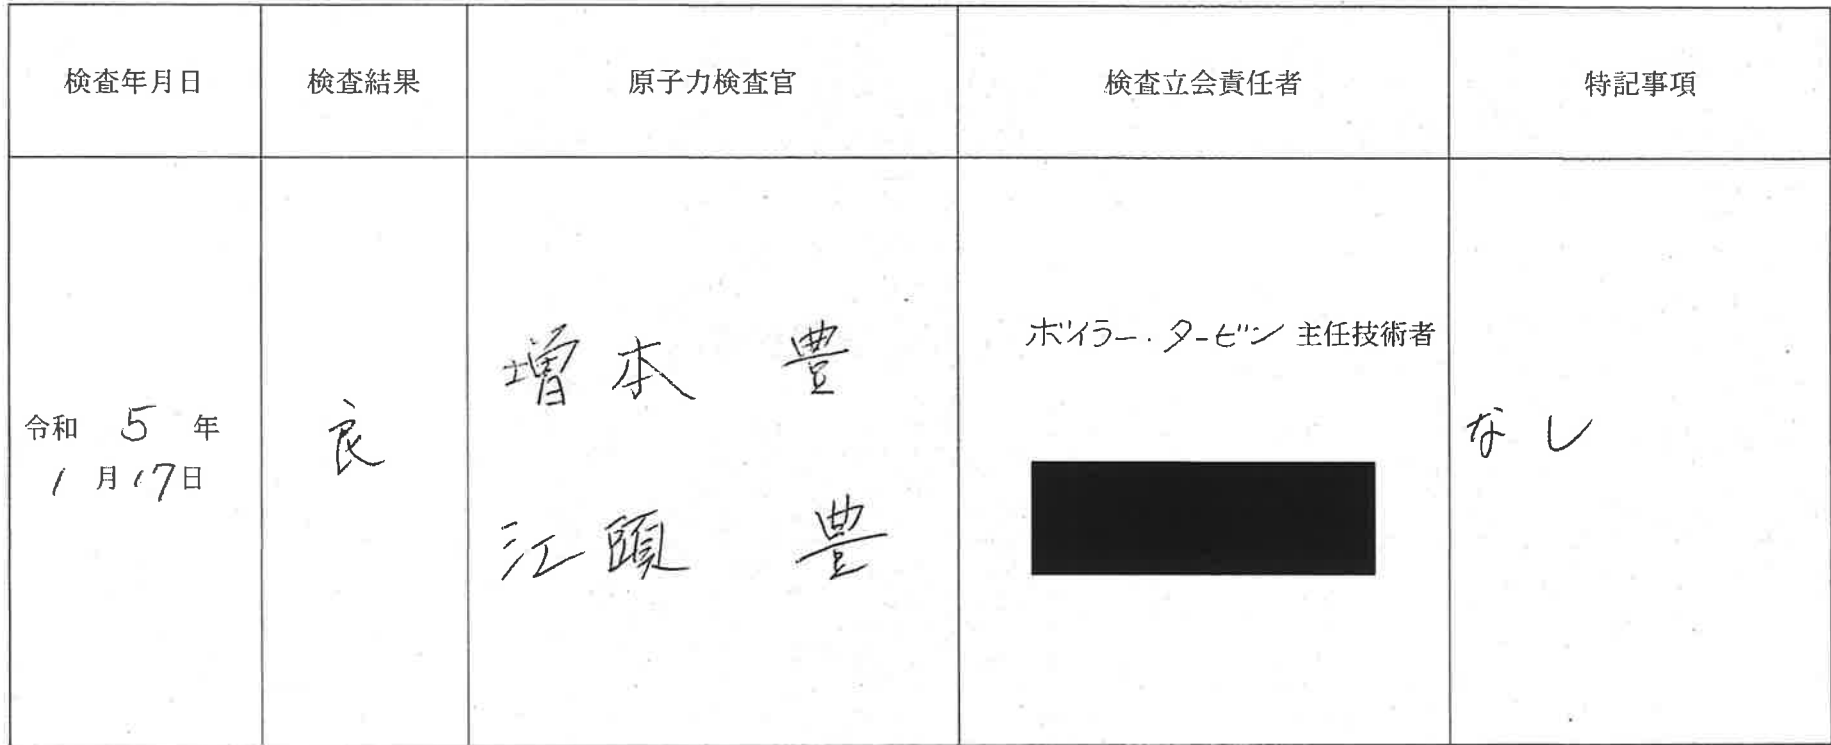 検査年月日 検査結果 原子力検査官 検査立会責任者 特記事項
令和 5 年
1 月 17 日
良
増本 豊
江頭 豊
ボイラー・タービン 主任技術者
なし